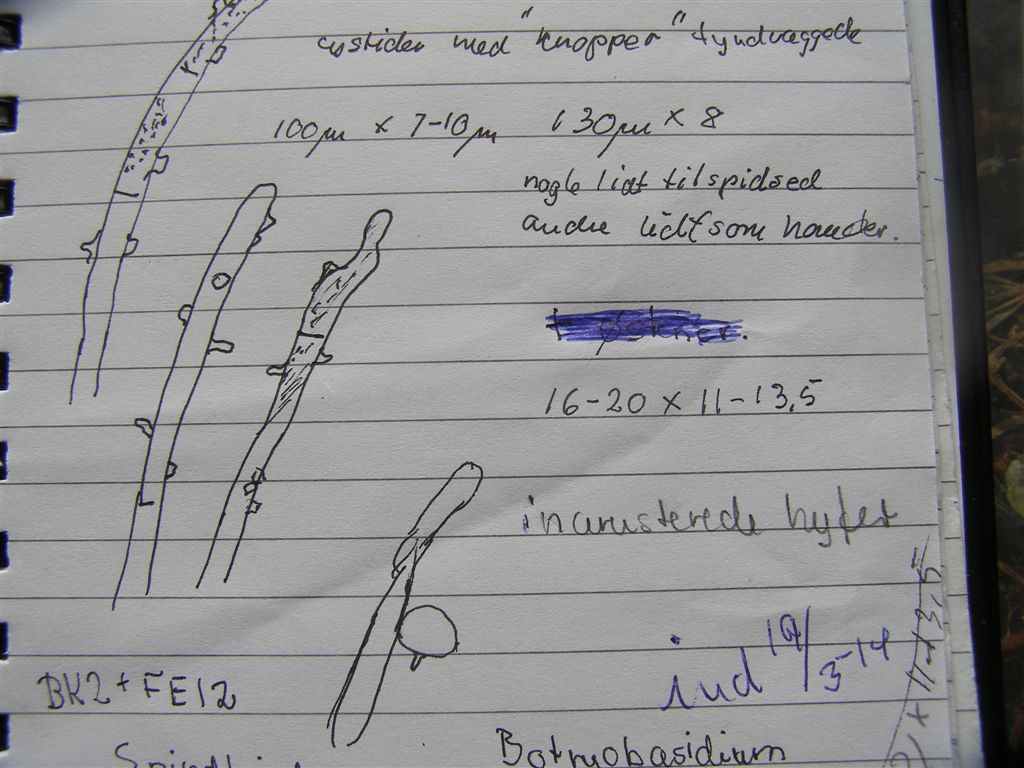 cystider med "knopper" tyndvæggede
100µm x 7-10µm 130µm x 8
nogle lidt tilspidsed
andre lidt som hoveder.
16-20 x 11-13,5
incrusterede hyfer
ind 19/3-14
BK2 + FE12
Botryobasidium